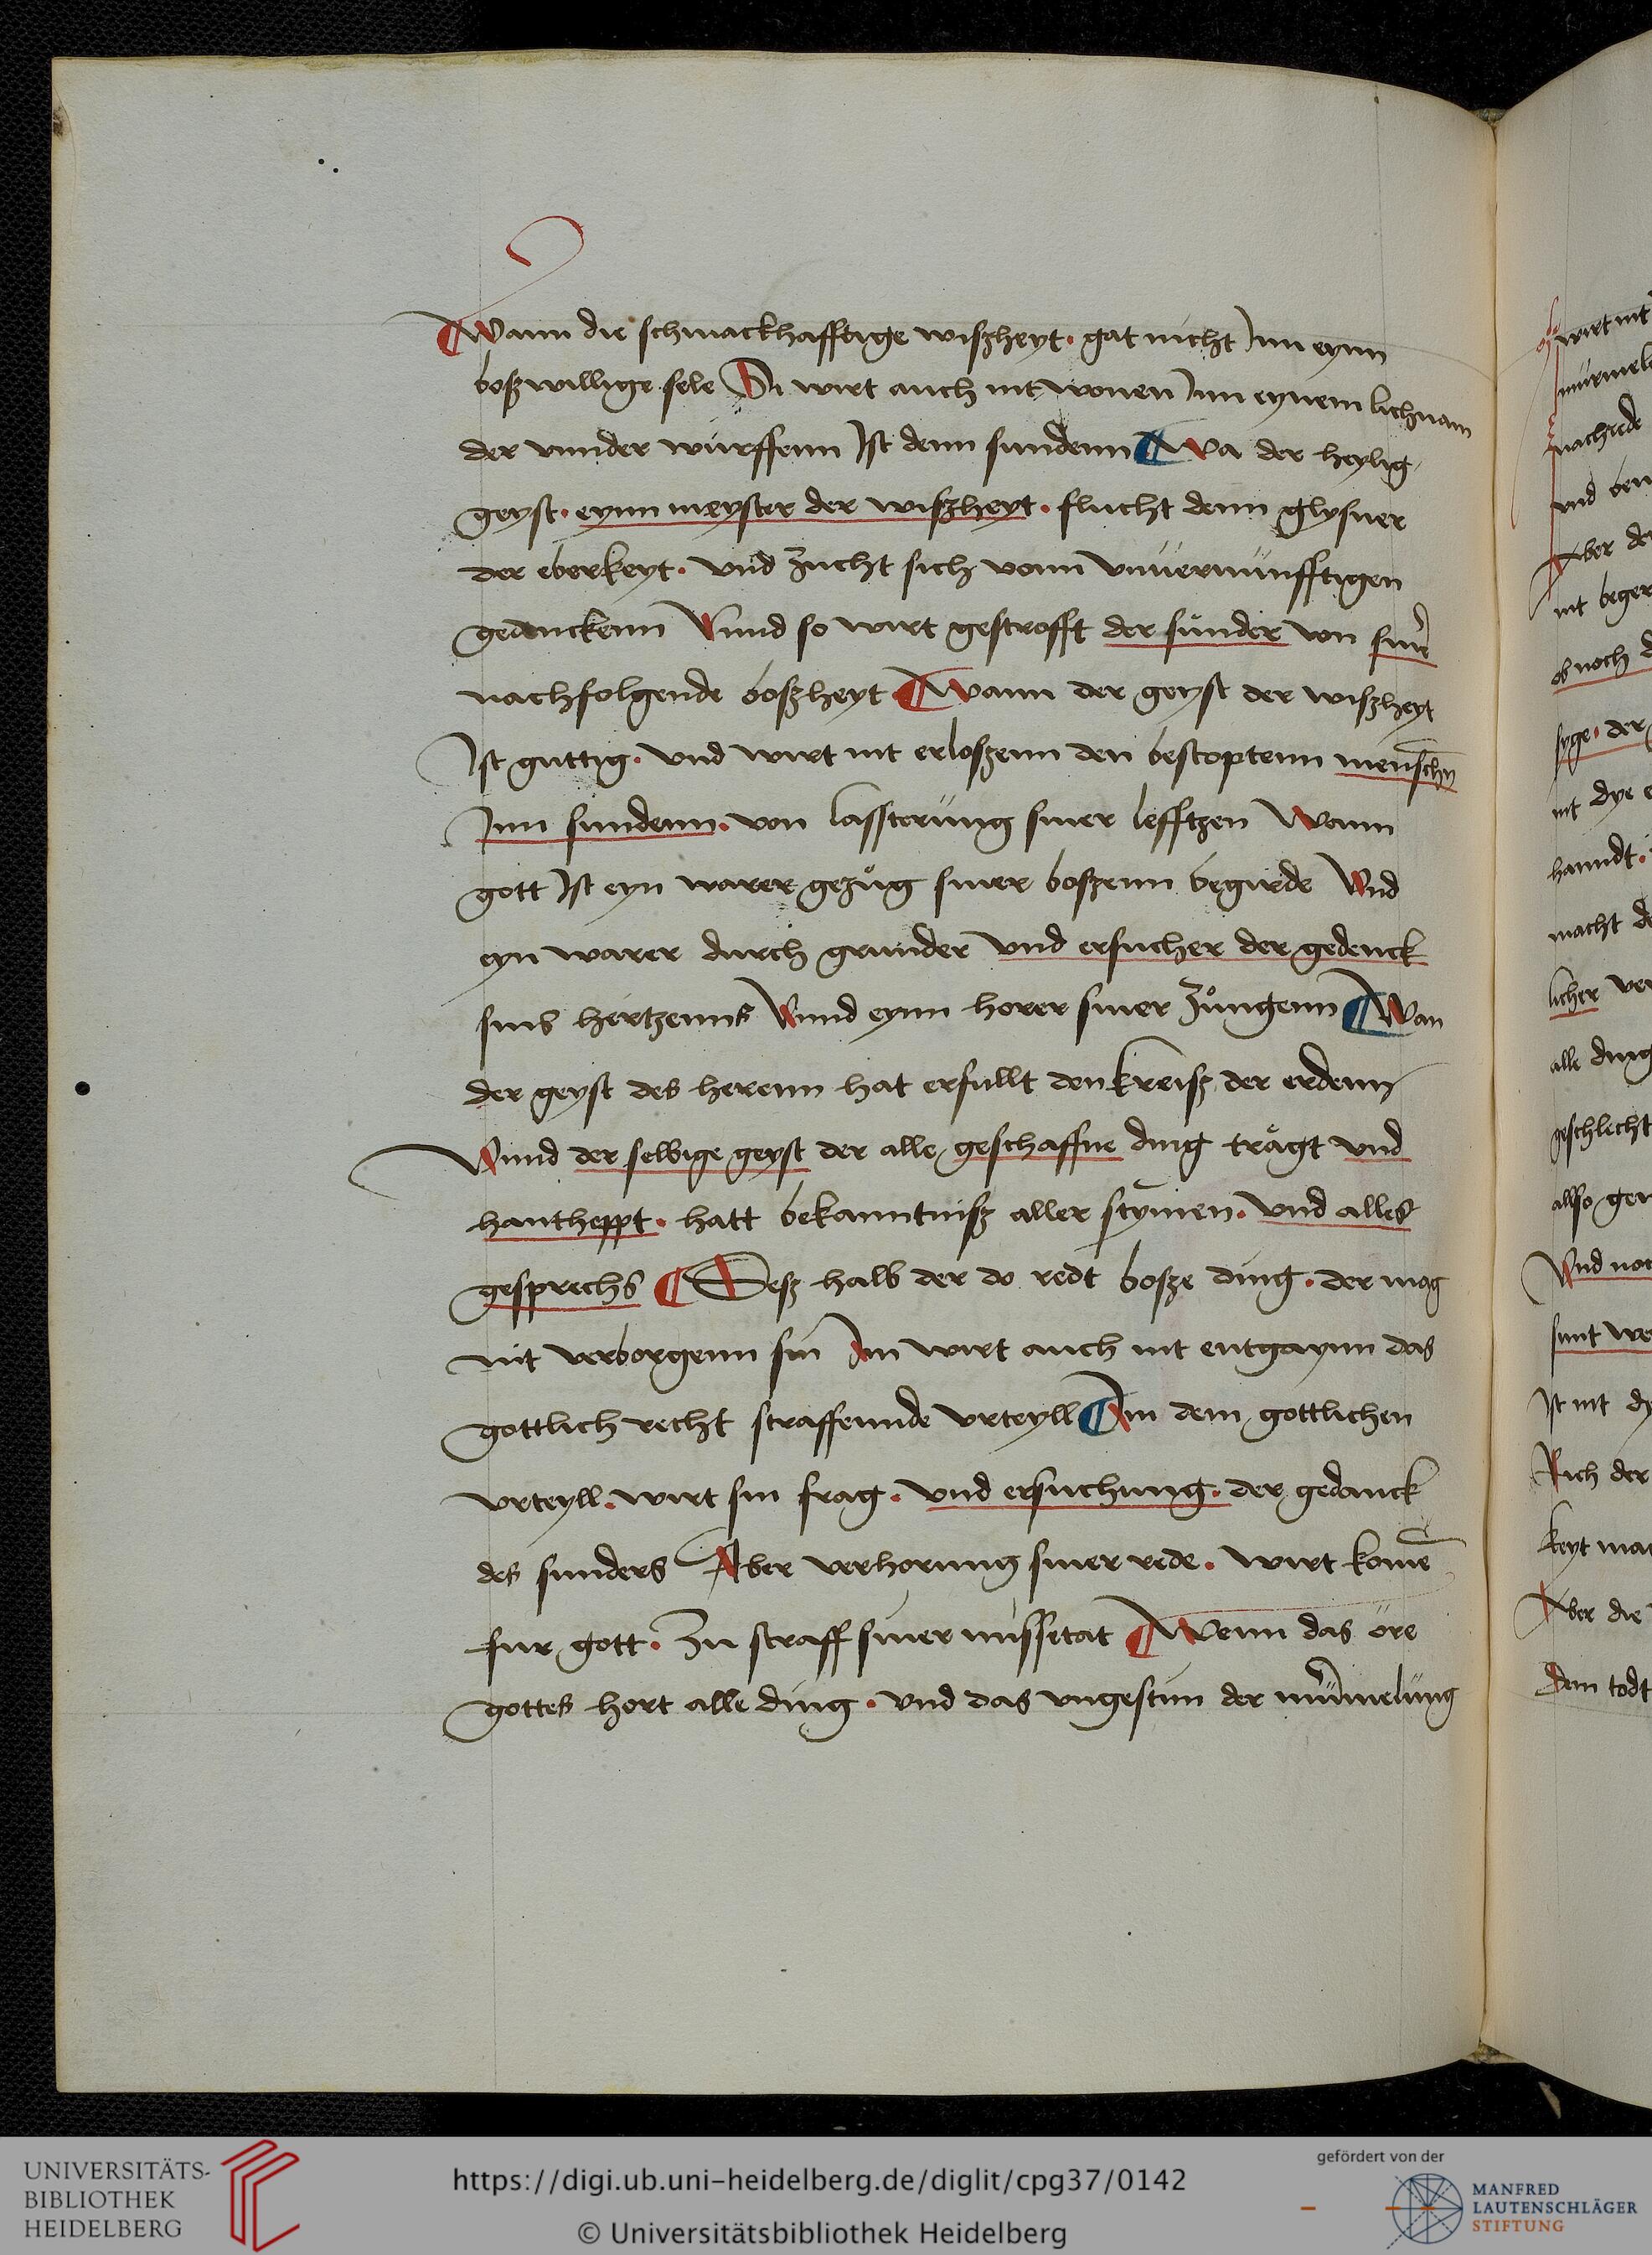 ¶Wann die schmackhafftige wiszheyt · gat nicht Jnn eynn
boszwillige sele Si wirt auch nit wonen Jnn eynem lichnam
der vnnder würffenn Jst denn sundenn ¶Wa der heylig
geyst · eynn meyster der wiszheyt · flucht denn glysner
der eberkeyt · vnd zucht sich vonn vnuernünfftigen
gedenckenn Vnnd so wirt gestrofft der sunder von siner
nachfolgende boszheyt ¶Wann der geyst der wiszheyt
Jst guttig · vnd wirt nit erloszenn den bestoptenn menschn̄
Jnn sundenn · von lassterüng siner lefftzen Wann
gott Jst eyn warer gezüg siner boszenn begirde Vnd
eyn warer durch grunder vnd ersucher der gedenck
sins hertzenns Vnnd eynn horer siner Züngenn ¶Wan
der geyst des herenn hat erfullt den kreisz der erdenn
Vnnd der selbige geyst der alle geschaffne ding trägt vnd
hantheppt · hatt bekanntnisz aller stymen · vnd alles
gesprechs ¶Desz halb der do redt bosze ding · der mag
nit verborgenn sin Jm wirt auch nit entgaynn das
gottlich recht straffennde vrteyll ¶Jm dem gottlichen
vrteyll · wirt sin frag · vnd ersuchung · der gedanck
des sunders Aber verhorung siner rede · wirt kome
fur gott · Zu straff siner missetat ¶Wenn das öre
gottes hort alle ding · vnd das vngestim der murmelüng
wirt nit
murmel
nachrede
vnd
Aber
nit beger
ob noch d
syge · der
nit dye
hanndt ·
macht de
licher
alle ding
geschlecht
allso
Vnd noc
sunt we
Jst nit dy
Rich der
keyt mac
Aber die
dem todt
UNIVERSITÄTS-
BIBLIOTHEK
HEIDELBERG
https://digi.ub.uni-heidelberg.de/diglit/cpg37/0142
© Universitätsbibliothek Heidelberg
gefördert von der
MANFRED
LAUTENSCHLÄGER
STIFTUNG